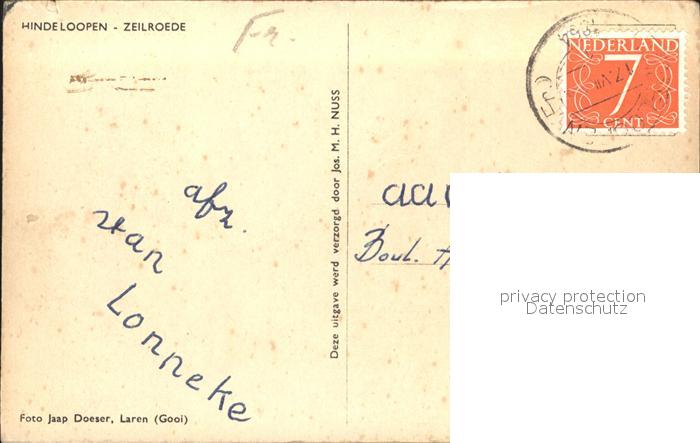 HINDELOOPEN - ZEILROEDE
Fr.
afz.
van
Lonneke
Foto Jaap Doeser, Laren (Gooi)
Deze uitgave werd verzorgd door Jos. M. H. NUSS
NEDERLAND
7
CENT
aa
Boul.
privacy protection
Datenschutz